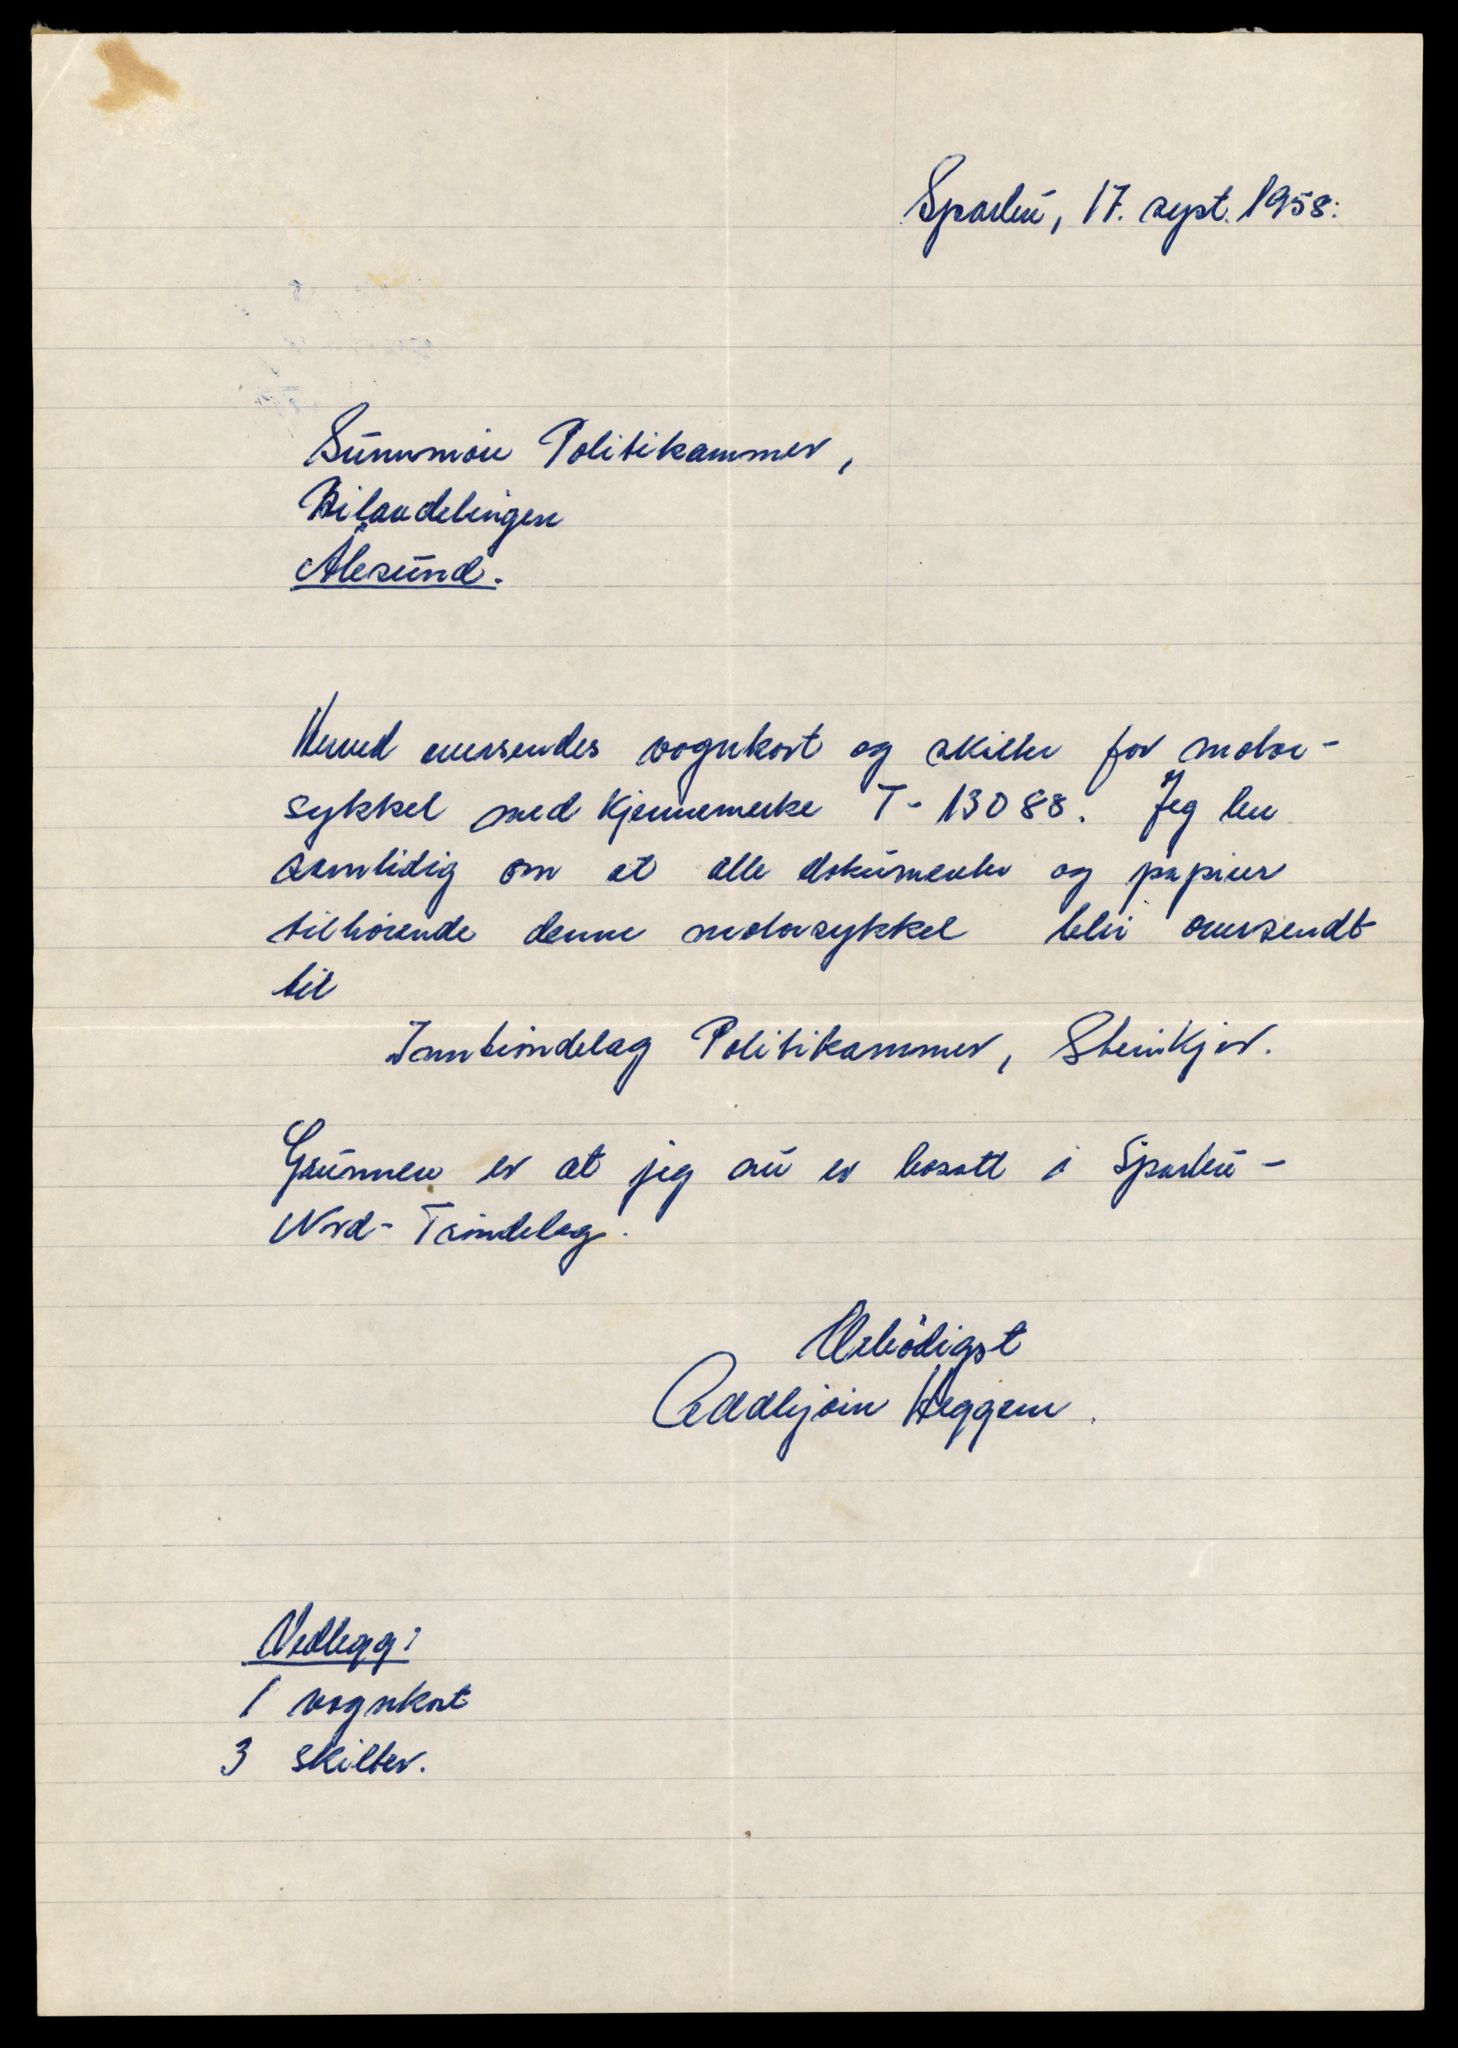 Sparbu, 17. sept. 1958.
Sunnmøre Politikammer,
Bilavdelingen
Ålesund.
Herved oversendes vognkort og skilter for motor-
sykkel med kjennemerke T-13088. Jeg ber
samtidig om at alle dokumenter og papirer
tilhørende denne motorsykkel blir oversendt
til
Inntrøndelag Politikammer, Steinkjer.
Grunnen er at jeg nu er bosatt i Sparbu -
Nord-Trøndelag.
Ærbødigst
Oddbjørn Heggem.
Vedlegg:
1 vognkort
3 skilter.